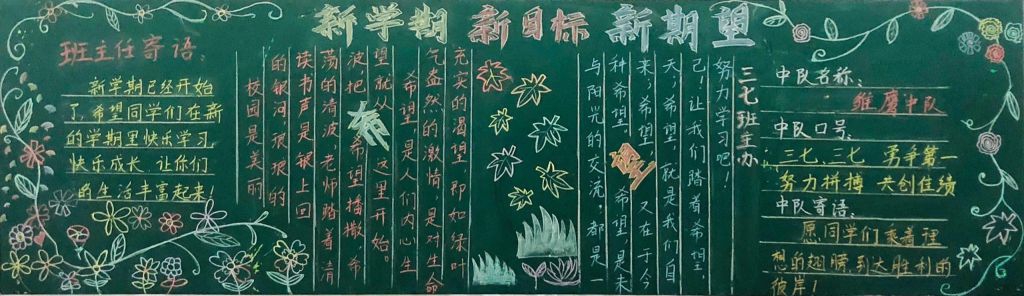 新学期 新目标 新期望
班主任寄语：
新学期已经开始
了，希望同学们在新
的学期里快乐学习，
快乐成长 让你们
的生活丰富起来！
校园是美丽
的银河琅琅的
读书声是湖上回
荡的清波，老师踏着清
波，把希望播撒，希
望就从这里开始。
希
希望，是人们内心生
气盎然的激情，是对生命
充实的渴望，即如绿叶
与阳光的交流；都是一
种希望，希望，是未
望
来，希望，又在于今
天，希望，就是我们自
己！让我们踏着希望，
努力学习吧！
三七班主办
中队名称：
雏鹰中队
中队口号：
三七，三七 勇争第一
努力拼搏 共创佳绩
中队寄语：
愿同学们乘着理
想的翅膀到达胜利的
彼岸！